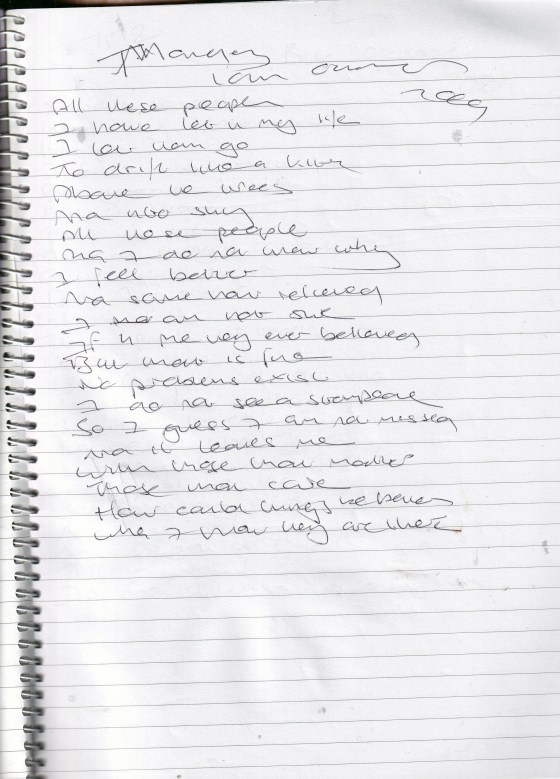 All these people
I have let in my life
I let them go
To drift like a
Above the trees
And into sky
All these people
And I do not know why
I feel better
And some how relieved
I am not sure
If in me they ever believed
But that is fine
No problems exist
I do not see a
So I guess I am not missed
And it leaves me
With those that matter
Those that care
How could things be better
When I know they are there